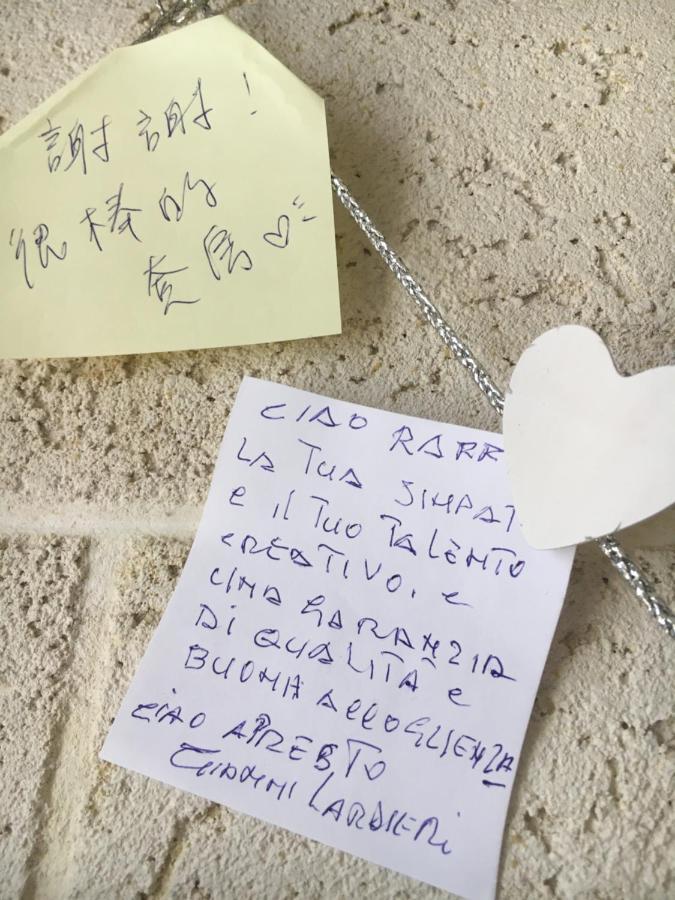 謝謝!
很棒的
套房
CIAO RAFF
LA TUA SIMPAT
E IL TUO TALENTO
CREATIVO. E
UNA GARANZIA
DI QUALITÀ E
BUONA ACCOGLIENZA
CIAO APRESTO
GIANNI LARDIERI